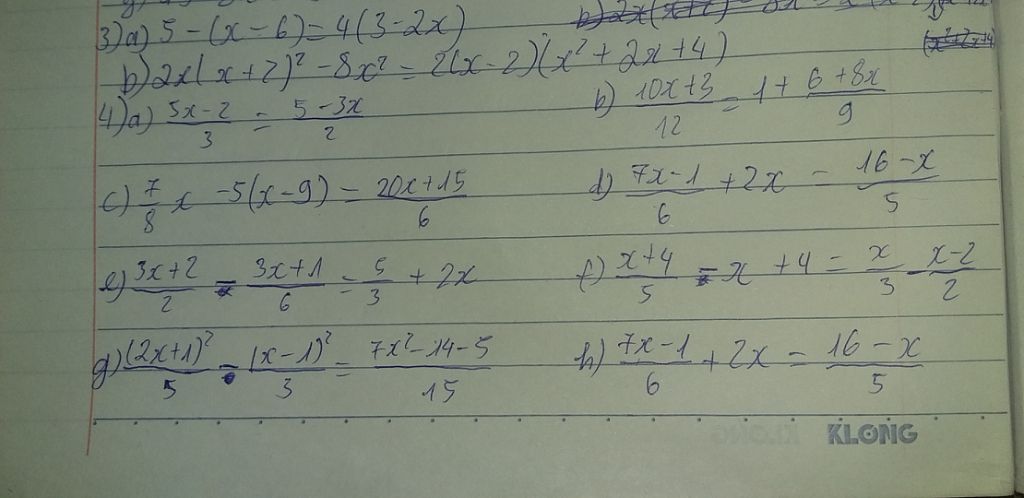 3) a) 5 - (x - 6) = 4(3 - 2x)
b) 2x(x + 2)² - 8x² = 2(x - 2)(x² + 2x + 4)
4) a) (5x - 2)/3 = (5 - 3x)/2 b) (10x + 3)/12 = 1 + (6 + 8x)/9
c) 7/8 x - 5(x - 9) = (20x + 15)/6 d) (7x - 1)/6 + 2x = (16 - x)/5
e) (3x + 2)/2 - (3x + 1)/6 = 5/3 + 2x f) (x + 4)/5 - x + 4 = x/3 - (x - 2)/2
g) (2x + 1)²/5 - (x - 1)²/3 = (7x² - 14 - 5)/15 h) (7x - 1)/6 + 2x = (16 - x)/5
KLONG